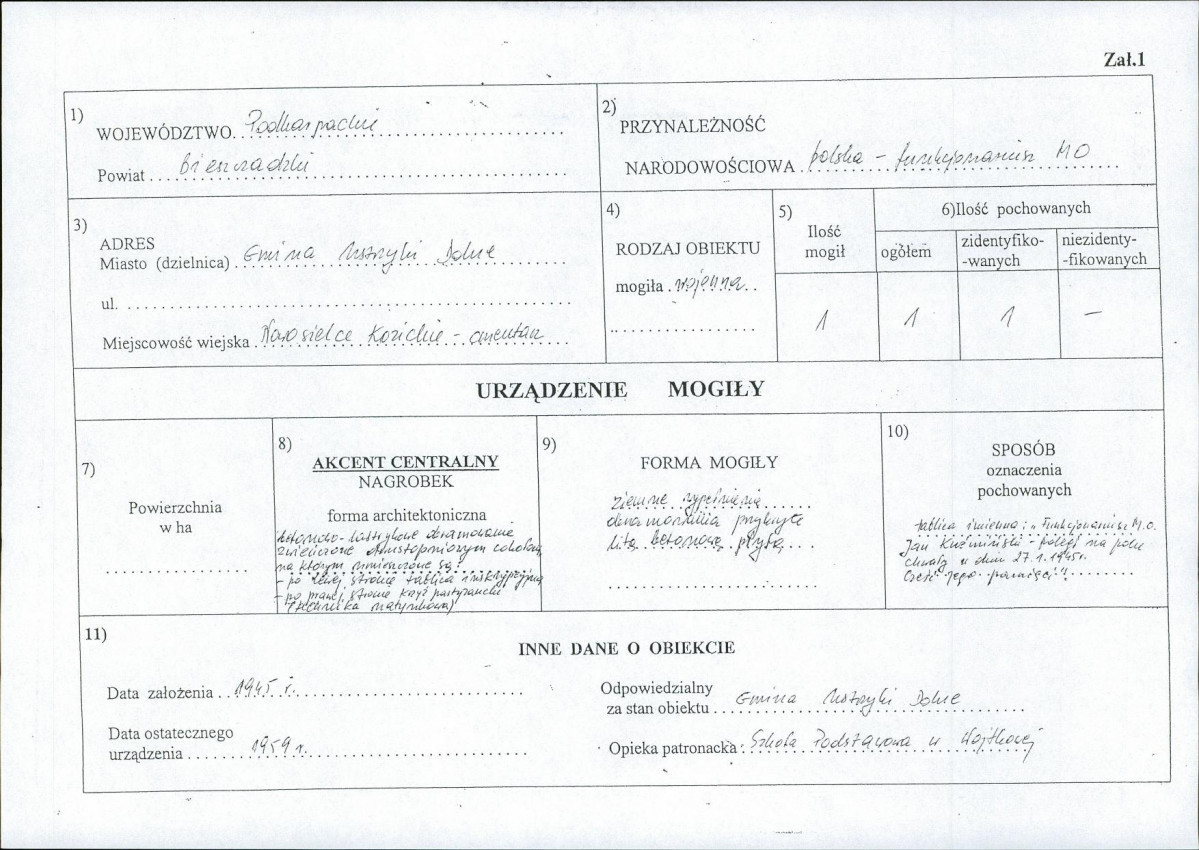 Zał.1
1)
WOJEWÓDZTWO. Podkarpackie
Powiat Bieszczadzki
2)
PRZYNALEŻNOŚĆ
NARODOWOŚCIOWA polska - funkcjonariusz MO
3)
ADRES
Miasto (dzielnica) Gmina Ustrzyki Dolne
ul.
Miejscowość wiejska Nowosielce Kozickie - cmentarz
4)
RODZAJ OBIEKTU
mogiła wojenna
5)
Ilość
mogił
1
6)Ilość pochowanych
ogółem
1
zidentyfiko-
-wanych
1
niezidenty-
-fikowanych
—
URZĄDZENIE MOGIŁY
7)
Powierzchnia
w ha
8)
AKCENT CENTRALNY
NAGROBEK
forma architektoniczna
betonowo-lastrykowe obramowanie
zwieńczone dwustopniowym cokołem
na którym umieszczone są:
- po lewej stronie tablica inskrypcyjna
- po prawej stronie krzyż partyzancki
(technika natynkowa)
9)
FORMA MOGIŁY
ziemne wypełnienie
obramowania przykryte
litą betonową płytą
10)
SPOSÓB
oznaczenia
pochowanych
tablica imienna: "Funkcjonariusz M.O.
Jan Kuźmiński - poległ na polu
chwały w dniu 27.1.1945r.
Cześć Jego pamięci"
11)
INNE DANE O OBIEKCIE
Data założenia 1945 r.
Data ostatecznego
urządzenia 1959 r.
Odpowiedzialny
za stan obiektu Gmina Ustrzyki Dolne
Opieka patronacka Szkoła Podstawowa w Wojtkowej